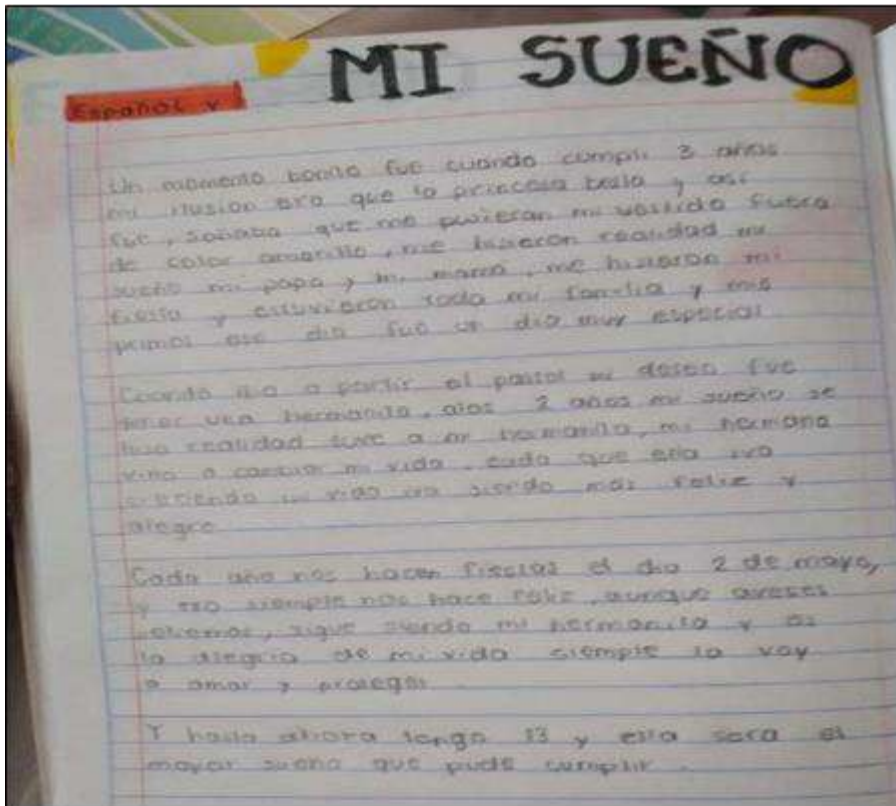 MI SUEÑO
Español y
Un momento bonito fue cuando cumpli 3 años
mi ilusion era que la princesa bella y asi
fue, soñaba que me pusieran mi vestido fuera
de color amarillo, me hicieron realidad mi
sueño mi papa y mi mama, me hicieron mi
fiesta y estuvieron toda mi familia y mis
primos ese dia fue un dia muy especial
Cuando iba a partir el pastel mi deseo fue
tener una hermanita, alos 2 años mi sueño se
hizo realidad tuve a mi hermanita, mi hermana
vino a cambiar mi vida, cada que ella iva
creciendo mi vida iva siendo más feliz y
alegre
Cada año nos hacen fiestas el dia 2 de mayo,
y eso siempre nos hace feliz, aunque aveses
peliemos, sigue siendo mi hermanita y es
la alegria de mi vida siempre la voy
a amar y proteger
Y hasta ahora tengo 13 y ella sera el
mayor sueño que pude cumplir.